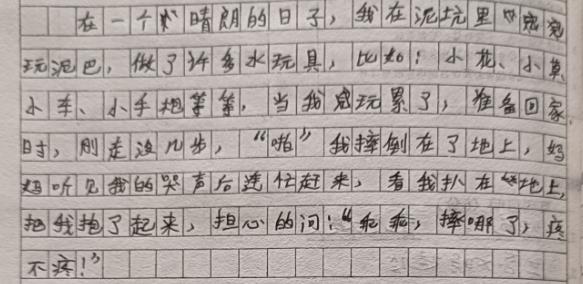 在一个晴朗的日子，我在泥坑里
玩泥巴，做了许多水玩具，比如：小花、小
小车、小手枪等等，当我玩累了，准备回家
时，刚走没几步，“啪”我摔倒在了地上，妈
妈听见我的哭声后连忙赶来，看我扒在地上，
把我抱了起来，担心的问：“乖乖，摔哪了，疼
不疼！”